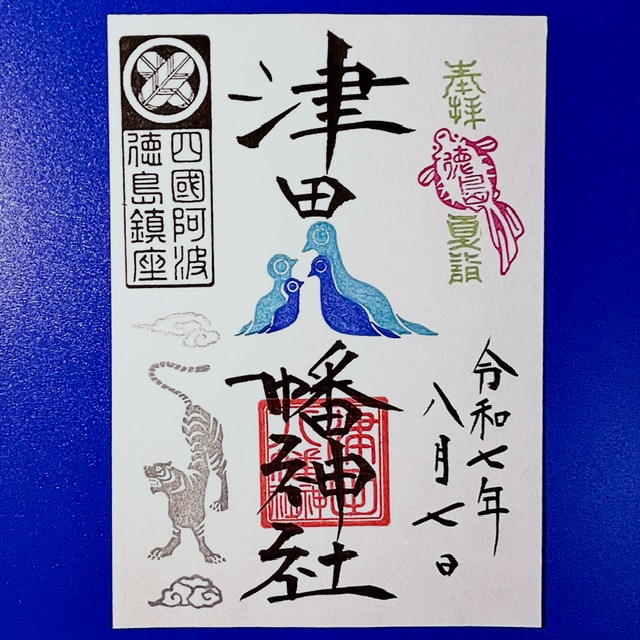 奉拝
徳島
夏詣
令和七年
八月七日
津田八幡神社
四國阿波
徳島鎮座